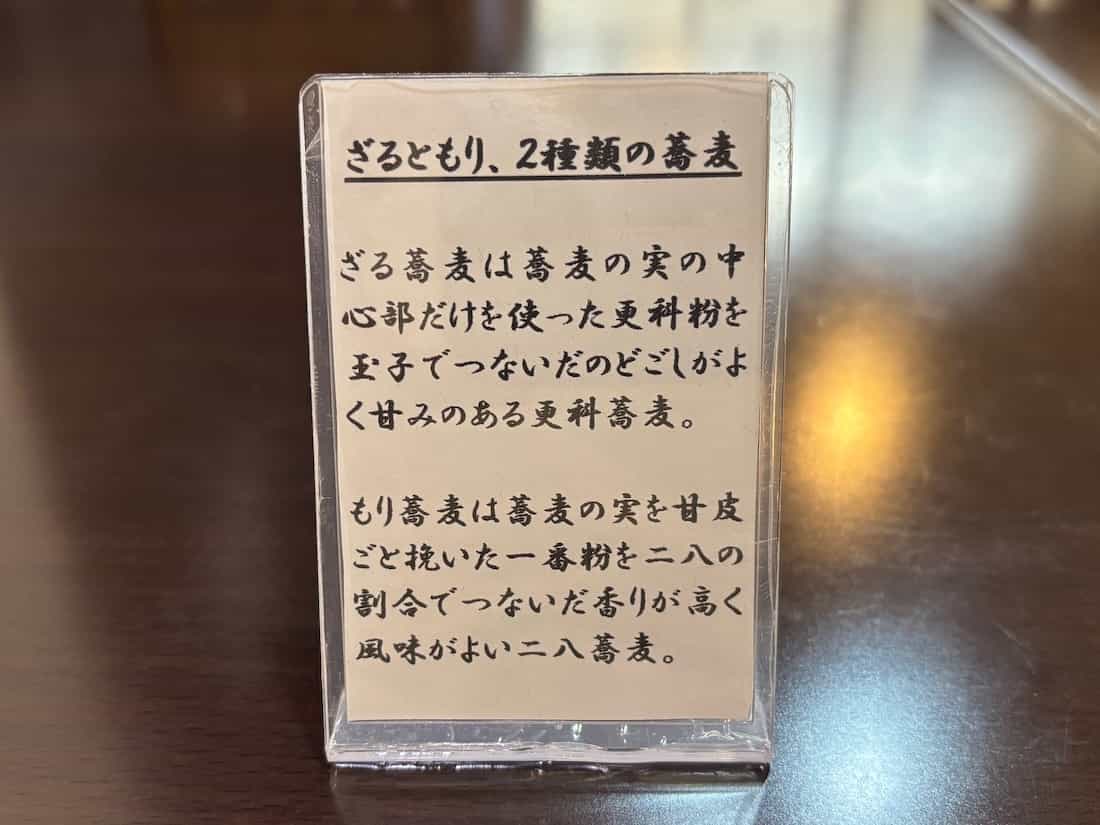 ざるともり、2種類の蕎麦
ざる蕎麦は蕎麦の実の中
心部だけを使った更科粉を
玉子でつないだのどごしがよ
く甘みのある更科蕎麦。
もり蕎麦は蕎麦の実を甘皮
ごと挽いた一番粉を二八の
割合でつないだ香りが高く
風味がよい二八蕎麦。